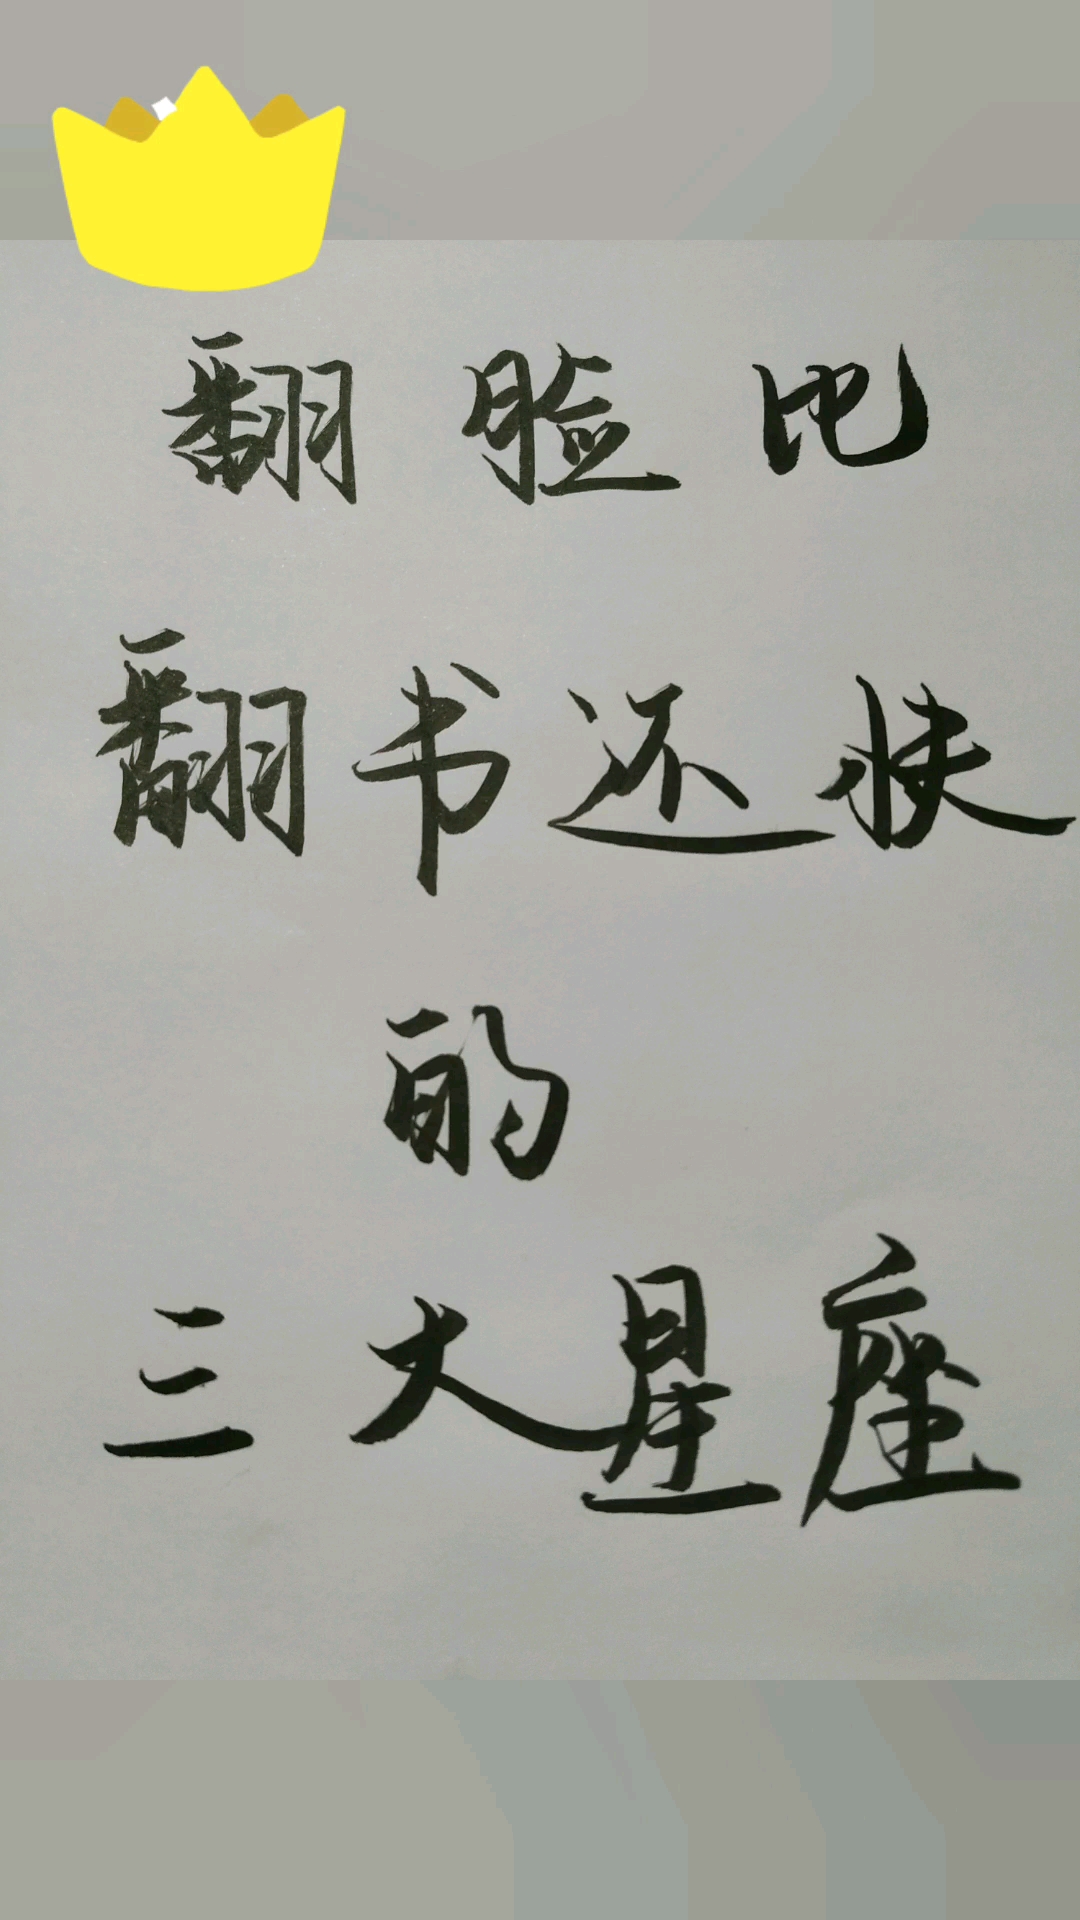 翻脸比
翻书还快
的
三大星座